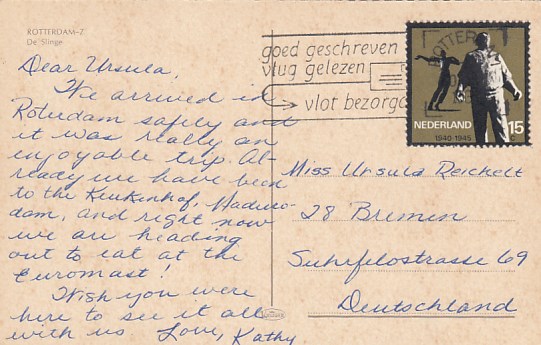 ROTTERDAM-Z
De Slinge
goed geschreven
vlug gelezen
vlot bezorgd
ROTTERDAM
NEDERLAND
15
1940-1945
Dear Ursula,
We arrived in
Roterdam safely and
it was really an
enjoyable trip. Al-
ready we have been
to the Keukenhof, Maduro-
dam, and right now
we are heading
out to eat at the
Euromast!
Wish you were
here to see it all
with us. Love, Kathy.
Miss Ursula Reichelt
28 Bremen
Suhrfeldstrasse 69
Deutschland